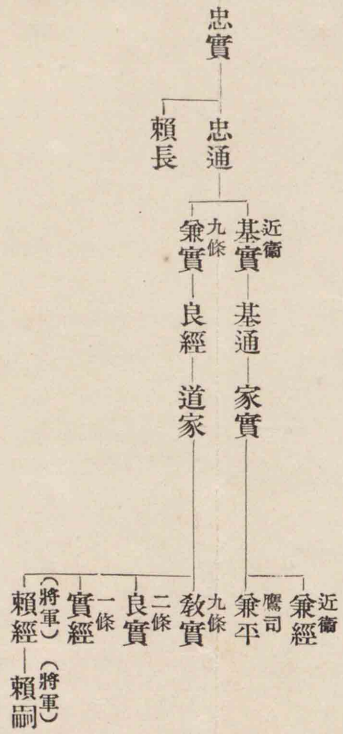 忠實
忠通
賴長
近衞
基實
基通
家實
九條
兼實
良經
道家
近衞
兼經
鷹司
兼平
九條
敎實
二條
良實
一條
實經
(將軍)
賴經
(將軍)
賴嗣